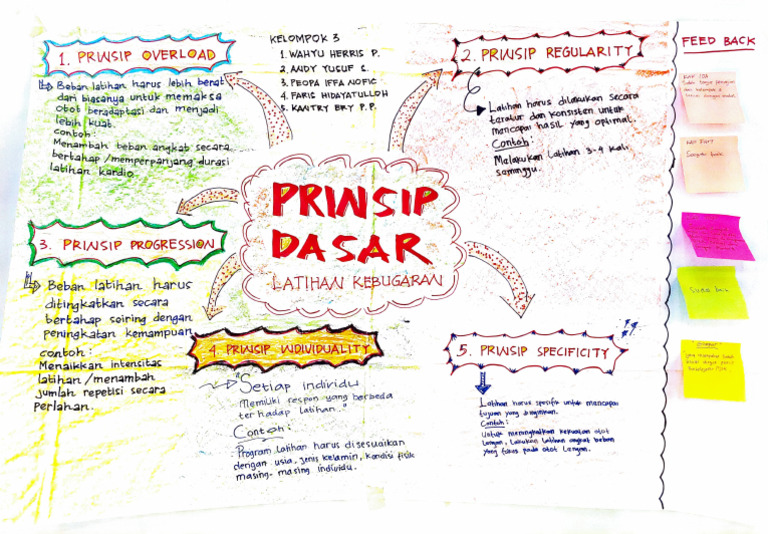 KELOMPOK 3
1. WAHYU HERRIS P.
2. ANDY YUSUF S.
3. PEOPA IFFA NOFIC
4. FARIS HIDAYATULLOH
5. KANTRY BKY P.P.
PRINSIP
DASAR
LATIHAN KEBUGARAN
1. PRINSIP OVERLOAD
Beban latihan harus lebih berat
dari biasanya untuk memaksa
otot beradaptasi dan menjadi
lebih kuat.
contoh:
Menambah beban angkat secara
bertahap / memperpanjang durasi
latihan kardio.
2. PRINSIP REGULARITY
Latihan harus dilakukan secara
teratur dan konsisten untuk
mencapai hasil yang optimal.
Contoh:
Melakukan Latihan 3-4 kali
seminggu.
3. PRINSIP PROGRESSION
Beban latihan harus
ditingkatkan secara
bertahap seiring dengan
peningkatan kemampuan
contoh:
Menaikkan intensitas
latihan / menambah
jumlah repetisi secara
Perlahan.
4. PRINSIP INDIVIDUALITY
"Setiap individu
Memiliki respon yang berbeda
terhadap latihan."
Contoh:
Program latihan harus disesuaikan
dengan usia, jenis kelamin, kondisi fisik
masing-masing individu.
5. PRINSIP SPECIFICITY
Latihan harus spesifik untuk mencapai
tujuan yang diinginkan.
Contoh:
Untuk meningkatkan kekuatan otot
lengan, lakukan latihan angkat beban
yang fokus pada otot lengan.
FEED BACK
Sudah baik